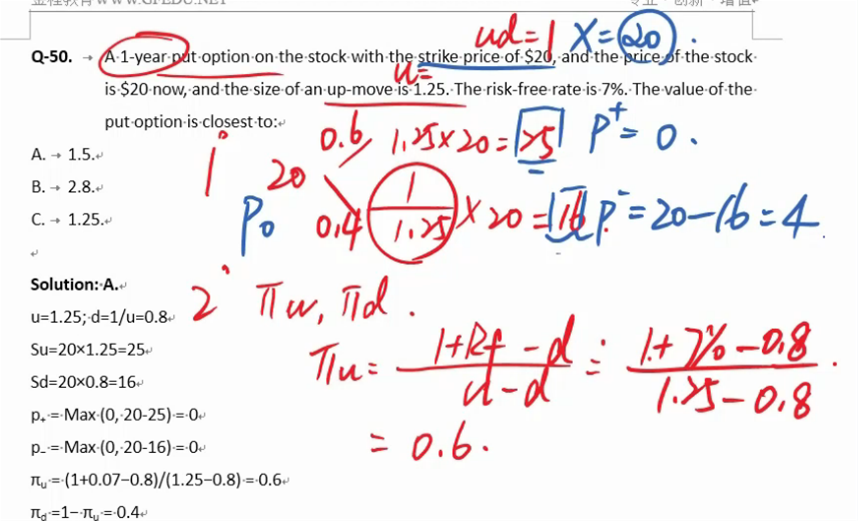 金程教育 WWW.GFEDU.NET 专业·创新·增值
ud=1 X=20.
Q-50. → A·1-year·put·option·on·the·stock·with·the·strike·price·of·$20,·and·the·price·of·the·stock·
u=
is·$20·now,·and·the·size·of·an·up-move·is·1.25.·The·risk-free·rate·is·7%.·The·value·of·the·
put·option·is·closest·to:↵
0.6 1.25×20=25 P⁺=0.
A. → 1.5.↵
1° 20
B. → 2.8.↵
P₀ 0.4 1/1.25 ×20=16 P⁻=20-16=4.
C. → 1.25.↵
↵
Solution:·A.↵
2° πu, πd.
u=1.25;·d=1/u=0.8↵
Su=20×1.25=25↵
πu = (1+Rf-d)/(u-d) = (1+7%-0.8)/(1.25-0.8).
Sd=20×0.8=16↵
p₊·=·Max·(0,·20-25)·=·0↵
= 0.6.
p₋·=·Max·(0,·20-16)·=·0↵
πᵤ·=·(1+0.07−0.8)/(1.25−0.8)·=·0.6↵
π_d·=1−·πᵤ·=0.4↵